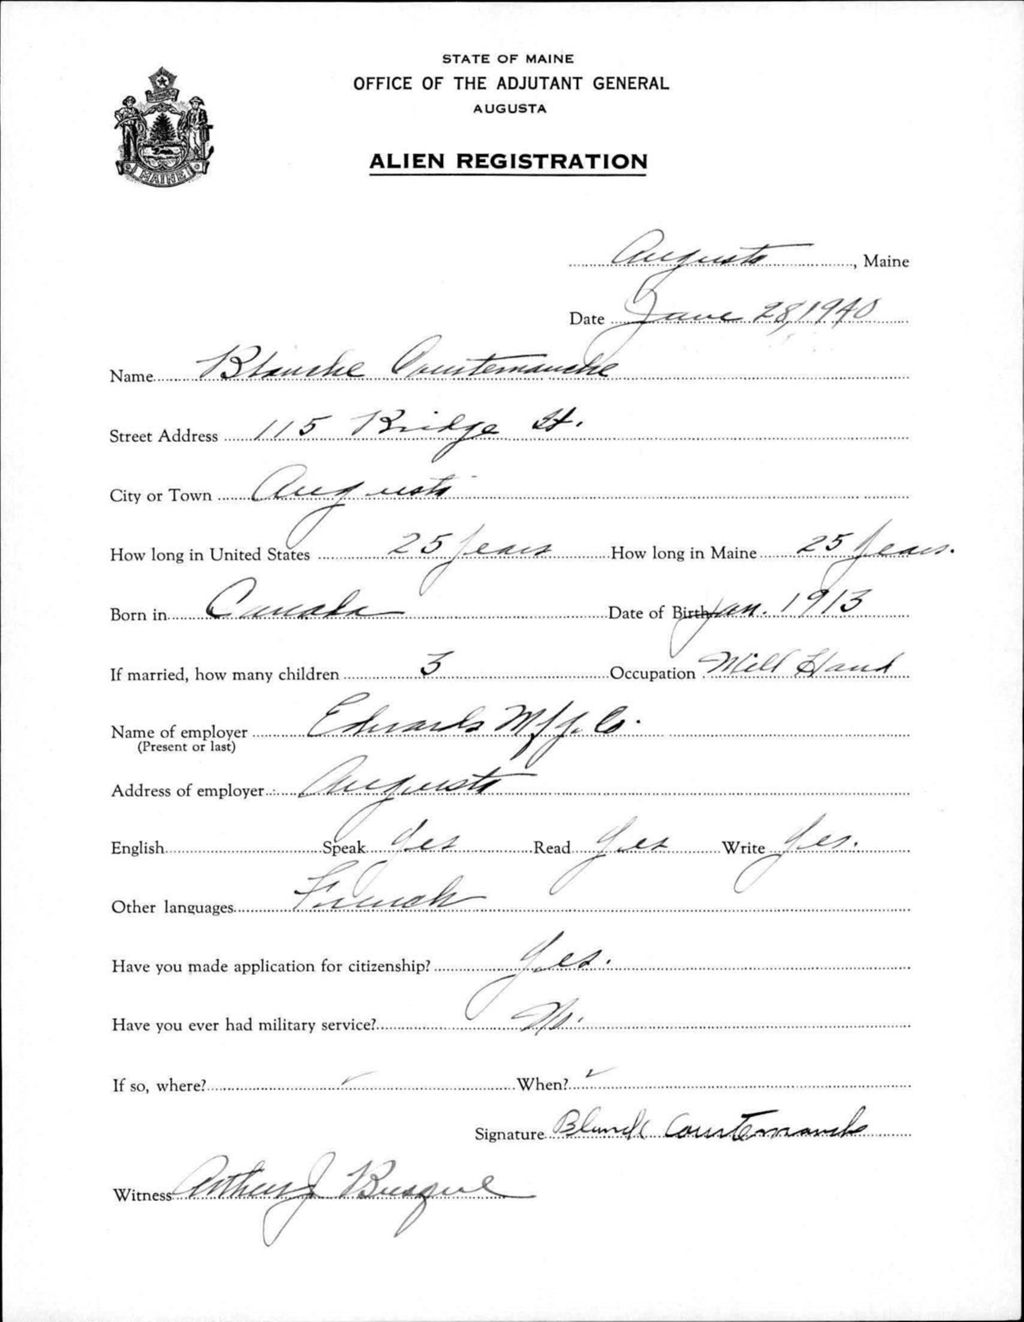 STATE OF MAINE
OFFICE OF THE ADJUTANT GENERAL
AUGUSTA
ALIEN REGISTRATION
MAINE
Augusta, Maine
Date June 28, 1940
Name Blanche Courtemanche
Street Address 115 Bridge St.
City or Town Augusta
How long in United States 25 years How long in Maine 25 years.
Born in Canada Date of Birth Jan. 1913
If married, how many children 3 Occupation Mill Hand
Name of employer Edwards Mfg. Co.
(Present or last)
Address of employer Augusta
English Speak Yes Read Yes Write Yes.
Other languages French
Have you made application for citizenship? Yes.
Have you ever had military service? No.
If so, where? When?
Signature Blanche Courtemanche
Witness Arthur J